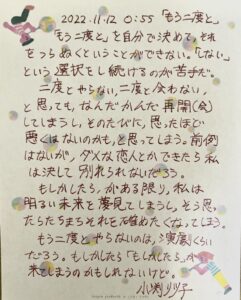 2022.11.12 0:55 「もう二度と」
「もう二度と」を自分で決めて、それ
をつらぬくということができない。「しない」
という選択をし続けるのが苦手だ。
二度とやらない、二度と会わない、
と思っても、なんだかんだ再開(会)
してしまうし、そのたびに、思ったほど
悪くはないのかも、と思ってしまう。前例
はないが、ダメな恋人とかできたら私
は決して別れられないだろう。
もしかしたら、がある限り、私は
明るい未来を夢見てしまうし、そう思
たらたちまちそれを確めたくなってしまう。
もう二度とやらないのは、演劇くらい
だろう。もしかしたら「もしかしたら」が
来てしまうのかもしれないけど。